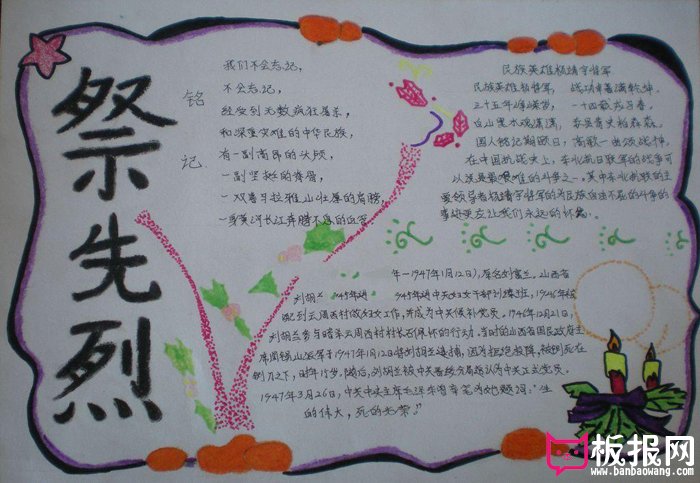 祭先烈
铭记
我们不会忘记,
不会忘记,
经受到无数疯狂屠杀,
和深重灾难的中华民族,
有一副高昂的头颅
一副坚挺的脊骨,
一双喜马拉雅山壮展的肩膀
一身黄河长江奔腾不息的血
民族英雄杨靖宇将军
民族英雄杨将军, 战功卓著满乾坤.
三十五年 一十四载
白山黑水 森森.
国人铭记 日, 高歌一曲颂战神.
在中国抗战史上, 东北抗日联军的战争可
以说是最艰难的斗争之一, 其中东北抗联的主
要领导者杨靖宇将军的为民族自由不屈的斗争的
事迹更应让我们永远的怀念.
年—1947年1月12日), 原名刘富兰, 山西省
刘胡兰 1945年 1946年
配到云周西村做妇女工作, 并成为中央候补党员. 1946年12月21日,
刘胡兰参与暗杀云周西村村长石佩怀的行动, 当时的山西省国民政府主
席阎锡山派军于1947年1月12日将刘胡兰逮捕, 因为拒绝投降, 被铡死在
铡刀之下, 时年15岁, 随后, 刘胡兰被中共晋绥分局追认为中共正式党员.
1947年3月26日, 中共中央主席毛泽东曾亲笔为她题词: “生
的伟大, 死的光荣.”
板报网
www.banbaowang.com